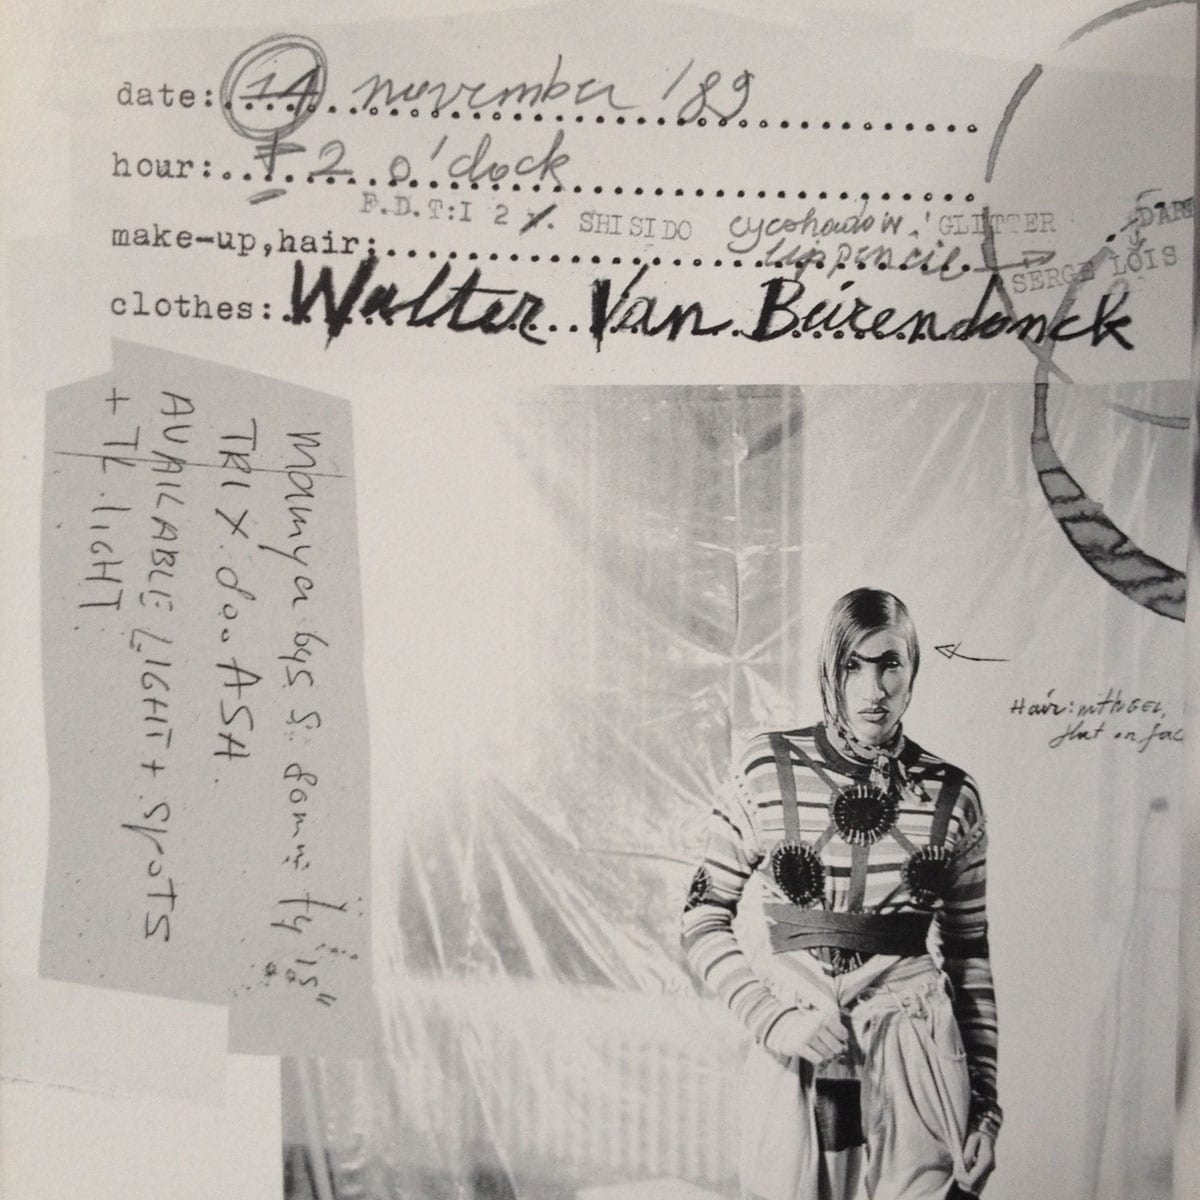 date: 14 november '89
hour: 2 o'clock
F.D.T:I 2 SHISIDO eyeshadow. GLITTER
make-up,hair: lippencil SERGE LOIS
clothes: Walter Van Beirendonck
Mamya
TRI X ASA
AVAILABLE LIGHT + SPOTS
+ TL. LIGHT
Hair: with GEL,
flat on fac